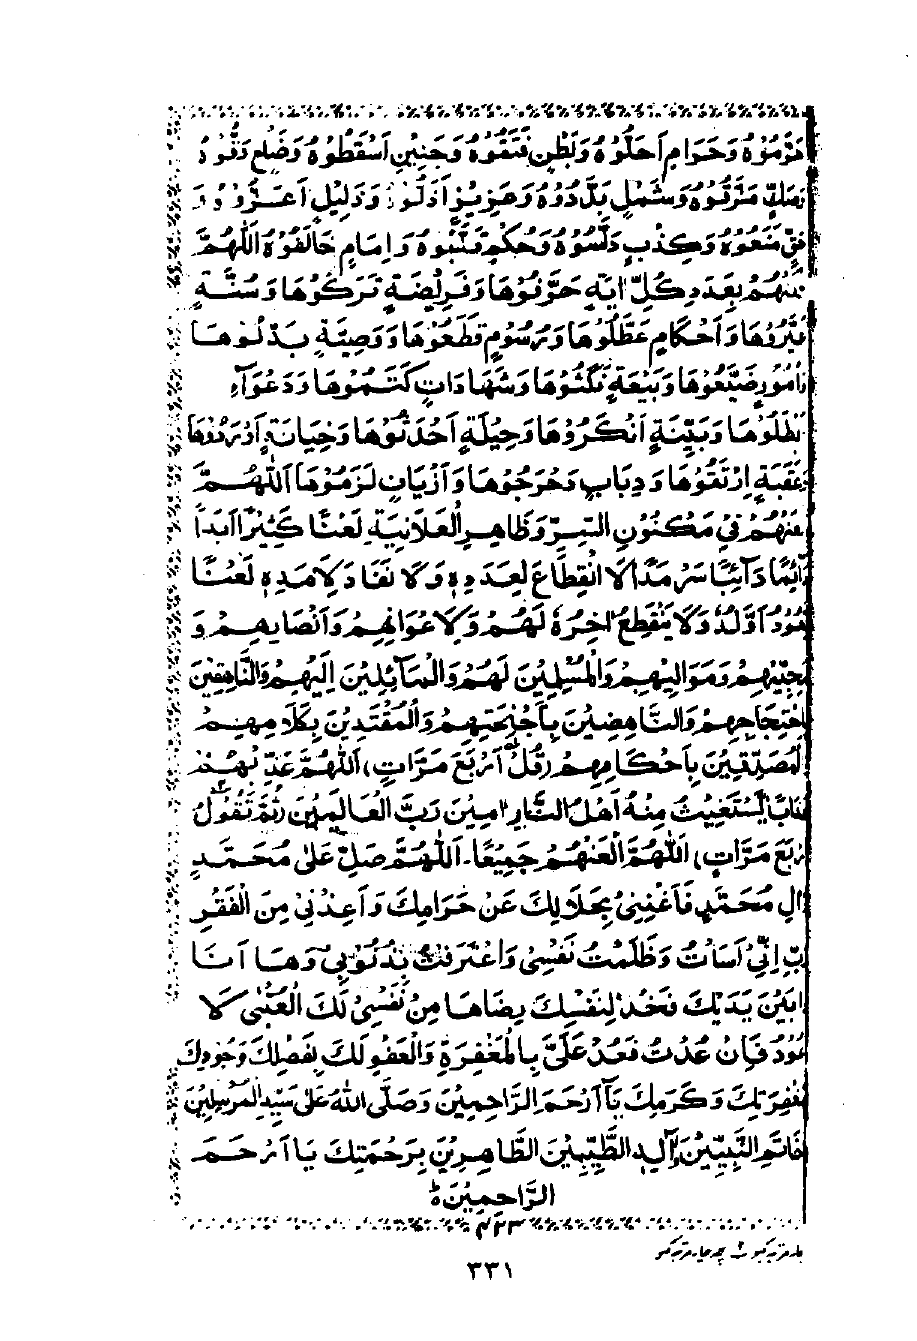 حَرَّمُوْهُ وَحَرَامٍ اَحَلُّوْهُ وَبَطْنٍ فَتَقُوْهُ وَجَنِيْنٍ اَسْقَطُوْهُ وَضِلْعٍ دَقُّوْهُ
مَزَّقُوْهُ وَشَمْلٍ بَدَّدُوْهُ وَعَزِيْزٍ اَذَلُّوْهُ وَذَلِيْلٍ اَعَزُّوْهُ وَ
حَقٍّ مَنَعُوْهُ وَكِذْبٍ دَلَّسُوْهُ وَحُكْمٍ قَلَّبُوْهُ وَاِمَامٍ خَالَفُوْهُ اَللّٰهُمَّ
بِعَدَدِ كُلِّ اٰيَةٍ حَرَّفُوْهَا وَفَرِيْضَةٍ تَرَكُوْهَا وَسُنَّةٍ
غَيَّرُوْهَا وَاَحْكَامٍ عَطَّلُوْهَا وَرُسُوْمٍ قَطَعُوْهَا وَوَصِيَّةٍ بَدَّلُوْهَا
وَاُمُوْرٍ ضَيَّعُوْهَا وَبَيْعَةٍ نَكَثُوْهَا وَشَهَادَاتٍ كَتَمُوْهَا وَدَعْوَآءٍ
اَبْطَلُوْهَا وَبَيِّنَةٍ اَنْكَرُوْهَا وَحِيْلَةٍ اَحْدَثُوْهَا وَخِيَانَةٍ اَوْرَدُوْهَا
وَعَقَبَةٍ اِرْتَقَوْهَا وَدِبَابٍ دَحْرَجُوْهَا وَاَزْيَانٍ لَزِمُوْهَا اَللّٰهُمَّ
الْعَنْهُمْ فِيْ مَكْنُوْنِ السِّرِّ وَظَاهِرِ الْعَلَانِيَةِ لَعْنًا كَثِيْرًا اَبَدًا
دَآئِمًا دَآئِبًا سَرْمَدًا لَا انْقِطَاعَ لِعَدَدِهٖ وَلَا نَفَادَ لِاَمَدِهٖ لَعْنًا
يَعُوْدُ اَوَّلُهٗ وَلَا يَنْقَطِعُ اٰخِرُهٗ لَهُمْ وَلِاَعْوَانِهِمْ وَاَنْصَارِهِمْ وَ
مُحِبِّيْهِمْ وَمَوَالِيْهِمْ وَالْمُسَلِّمِيْنَ لَهُمْ وَالْمَآئِلِيْنَ اِلَيْهِمْ وَالنَّاهِقِيْنَ
بِاحْتِجَاجِهِمْ وَالنَّاهِضِيْنَ بِاَجْنِحَتِهِمْ وَالْمُقْتَدِيْنَ بِكَلَامِهِمْ
وَالْمُصَدِّقِيْنَ بِاَحْكَامِهِمْ (قُلْ اَرْبَعَ مَرَّاتٍ) اَللّٰهُمَّ عَذِّبْهُمْ
عَذَابًا يَّسْتَغِيْثُ مِنْهُ اَهْلُ النَّارِ اٰمِيْنَ رَبَّ الْعَالَمِيْنَ (ثُمَّ تَقُوْلُ
اَرْبَعَ مَرَّاتٍ) اَللّٰهُمَّ الْعَنْهُمْ جَمِيْعًا۔ اَللّٰهُمَّ صَلِّ عَلٰى مُحَمَّدٍ
وَاٰلِ مُحَمَّدٍ فَاَغْنِنِيْ بِحَلَالِكَ عَنْ حَرَامِكَ وَاَعِذْنِيْ مِنَ الْفَقْرِ
رَبِّ اِنِّيْ اَسَأْتُ وَظَلَمْتُ نَفْسِيْ وَاعْتَرَفْتُ بِذُنُوْبِيْ وَهَا اَنَا
ذَا بَيْنَ يَدَيْكَ فَخُذْ لِنَفْسِكَ رِضَاهَا مِنْ نَفْسِيْ لَكَ الْعُتْبٰى لَا
اَعُوْدُ فَاِنْ عُدْتُ فَعُدْ عَلَيَّ بِالْمَغْفِرَةِ وَالْعَفْوِ لَكَ بِفَضْلِكَ وَجُوْدِكَ
بِمَغْفِرَتِكَ وَكَرَمِكَ يَآ اَرْحَمَ الرَّاحِمِيْنَ وَصَلَّى اللّٰهُ عَلٰى سَيِّدِ الْمُرْسَلِيْنَ
وَخَاتَمِ النَّبِيِّيْنَ وَاٰلِهِ الطَّيِّبِيْنَ الطَّاهِرِيْنَ بِرَحْمَتِكَ يَا اَرْحَمَ
الرَّاحِمِيْنَ ط
۳۳۱